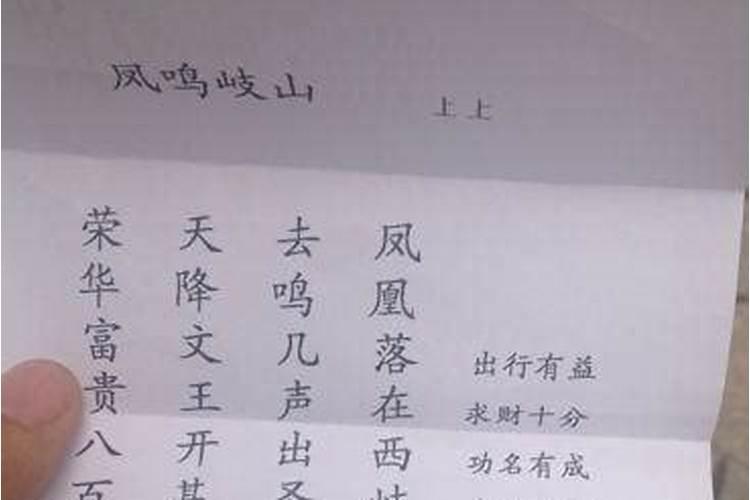 凤鸣岐山
上上
凤凰落在西岐
去鸣几声出圣
天降文王开基
荣华富贵八百
出行有益
求财十分
功名有成